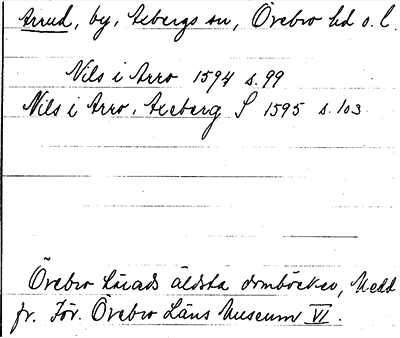 Arrud, by, Axbergs sn, Örebro hd o. l.
Nils i Arro 1594 s. 99
Nils i Arro, Axeberg S 1595 s. 103
Örebro Härads äldsta domböcker, Medd
fr. För. Örebro Läns Museum VI.